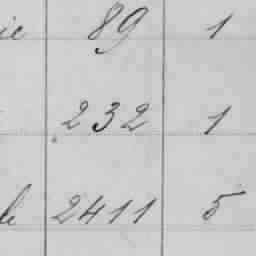 ie 89 1
232 1
le 2411 5